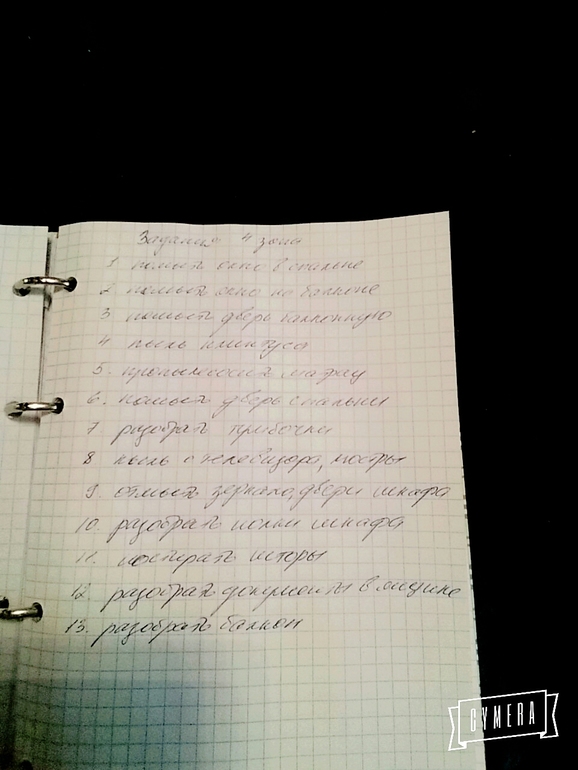 Задания 4 зоны
1 помыть окно в спальне
2 помыть окно на балконе
3 помыть дверь балконную
4 пыль плинтуса
5. пропылесосить матрац
6. помыть дверь спальни
7 разобрать тумбочки
8 пыль с телевизора, люстры
9. отмыть зеркало, двери шкафа
10. разобрать полки шкафа
11. постирать шторы
12. разобрать документы в ящике
13. разобрать балкон
CYMERA